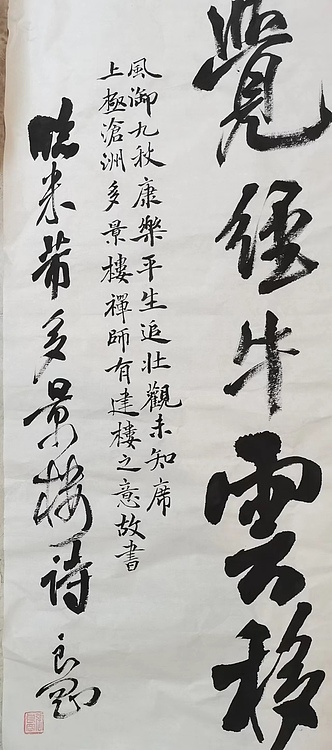 覺徑牛雲移
風御九秋康樂平生追壯觀未知席
上極滄洲多景樓禪師有建樓之意故書
臨米芾多景樓詩